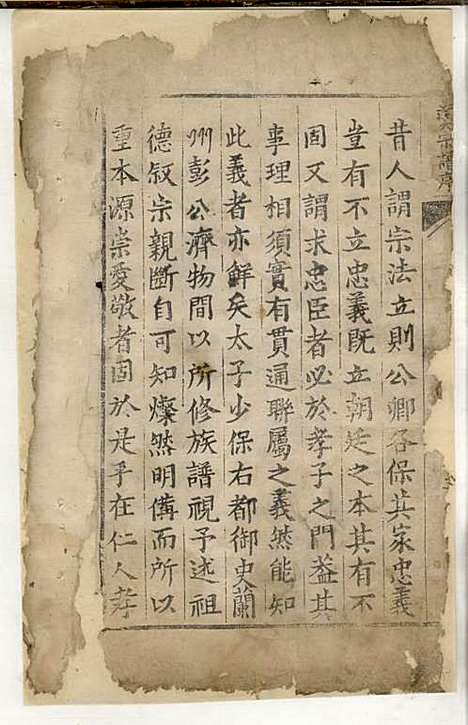 宗譜序
昔人謂宗法立則公卿各保其家忠義
豈有不立忠義既立朝廷之本其有不
固又謂求忠臣者必於孝子之門葢其
事理相須實有貫通聯屬之義然能知
此義者亦鮮矣太子少保右都御史蘭
州彭公濟物間以所修族譜視予述祖
德敘宗親斷自可知燦然明備而所以
重本源崇愛敬者固於是乎在仁人孝